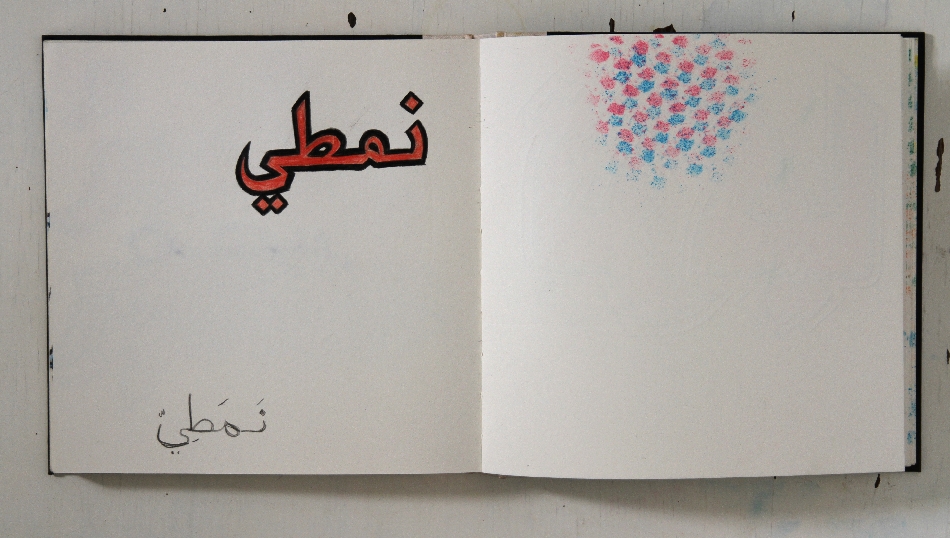 نمطي
نَمَطِيّ